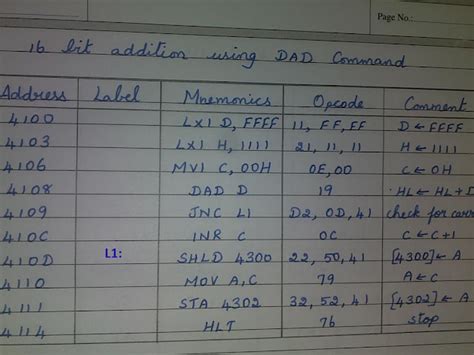 Page No.:
16 bit addition using DAD Command
Address Label Mnemonics Opcode Comment
4100 LXI D, FFFF 11, FF, FF D ← FFFF
4103 LXI H, 1111 21, 11, 11 H ← 1111
4106 MVI C, 00H 0E, 00 C ← 0H
4108 DAD D 19 HL ← HL + D
4109 JNC L1 D2, 0D, 41 check for carr
410C INR C 0C C ← C + 1
410D L1: SHLD 4300 22, 50, 41 [4300] ← A
4110 MOV A, C 79 A ← C
4111 STA 4302 32, 52, 41 [4302] ← A
4114 HLT 76 stop